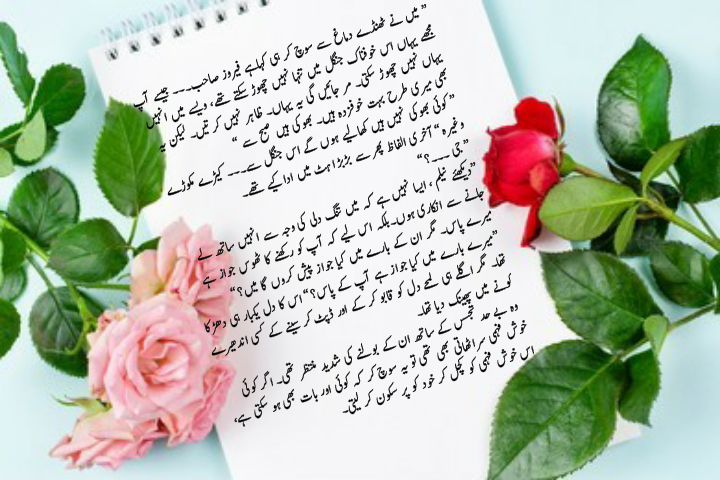 ” میں نے ٹھنڈے دماغ سے سوچ کر ہی کہا ہے فیروز صاحب۔۔۔ جیسے آپ
مجھے یہاں اس خوفناک جنگل میں تنہا نہیں چھوڑ سکتے تھے، ویسے میں انہیں
یہاں نہیں چھوڑ سکتی۔ مر جائیں گی یہ یہاں۔ ظاہر نہیں کر تیں۔ لیکن یہ
بھی میری طرح بہت خوفزدہ ہیں۔ بھوکی ہیں صبح سے “
”کوئی بھوکی نہیں ہیں کھا لیے ہوں گے اس جنگل سے۔۔۔ کیڑے مکوڑے
وغیرہ “ آخری الفاظ پھر سے بڑبڑاہٹ میں ادا کیے تھے۔
”جی ۔۔۔؟“
”دیکھئے نیلم ، ایسا نہیں ہے کہ میں تنگ دلی کی وجہ سے انہیں ساتھ لے
جانے سے انکاری ہوں۔ بلکہ اس لیے کہ آپ کو رکھنے کا ٹھوس جواز ہے
میرے پاس۔ مگر ان کے بارے میں کیا جواز پیش کروں گا میں؟“
”میرے بارے میں کیا جواز ہے آپ کے پاس؟“ اس کا دل یکبار ہی دھڑکا
تھا۔ مگر اگلے ہی لمحے دل کو قابو کر کے اور ڈپٹ کر سینے کے کسی اندھیرے
کونے میں پھینک دیا تھا۔
وہ بے حد تجسس کے ساتھ ان کے بولنے کی شدید منتظر تھی۔ اگر کوئی
خوش فہمی سر اٹھاتی بھی تھی تو یہ سوچ کر کہ کوئی اور بات بھی ہو سکتی ہے،
اس خوش فہمی کو کچل کر خود کو پر سکون کر لیتی۔